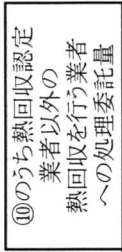 ⑩のうち熱回収認定
業者以外の
熱回収を行う業者
への処理委託量